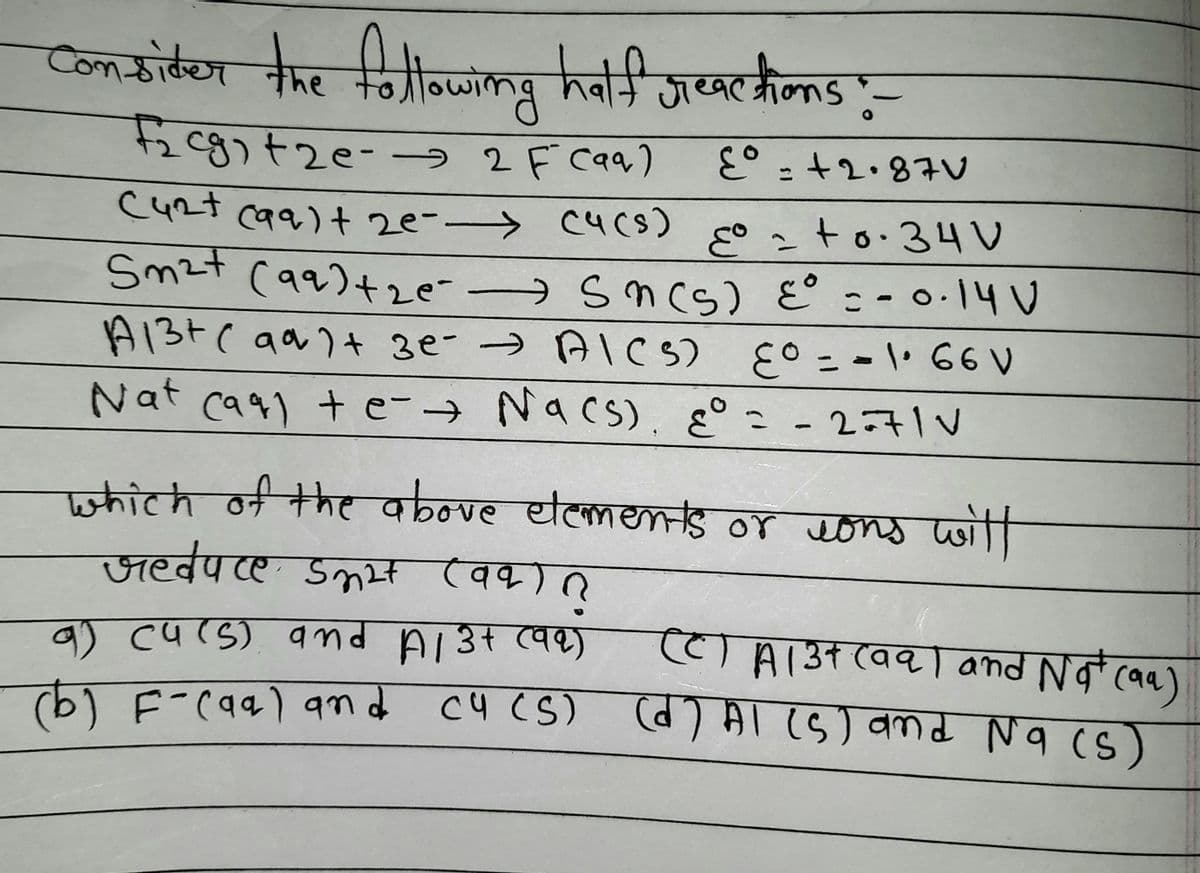 Consider the following half reactions :-
F2 (g) + 2e- → 2 F- (aq) ε° = +2.87V
Cu2+ (aq) + 2e- → Cu(s) ε° = +0.34V
Sn2+ (aq) + 2e- → Sn(s) ε° = -0.14V
Al3+ (aq) + 3e- → Al(s) ε° = -1.66V
Na+ (aq) + e- → Na(s). ε° = -2.71V
which of the above elements or ions will
reduce Sn2+ (aq) ?
a) Cu(s) and Al3+ (aq) (c) Al3+ (aq) and Na+ (aq)
(b) F-(aq) and Cu(s) (d) Al(s) and Na(s)